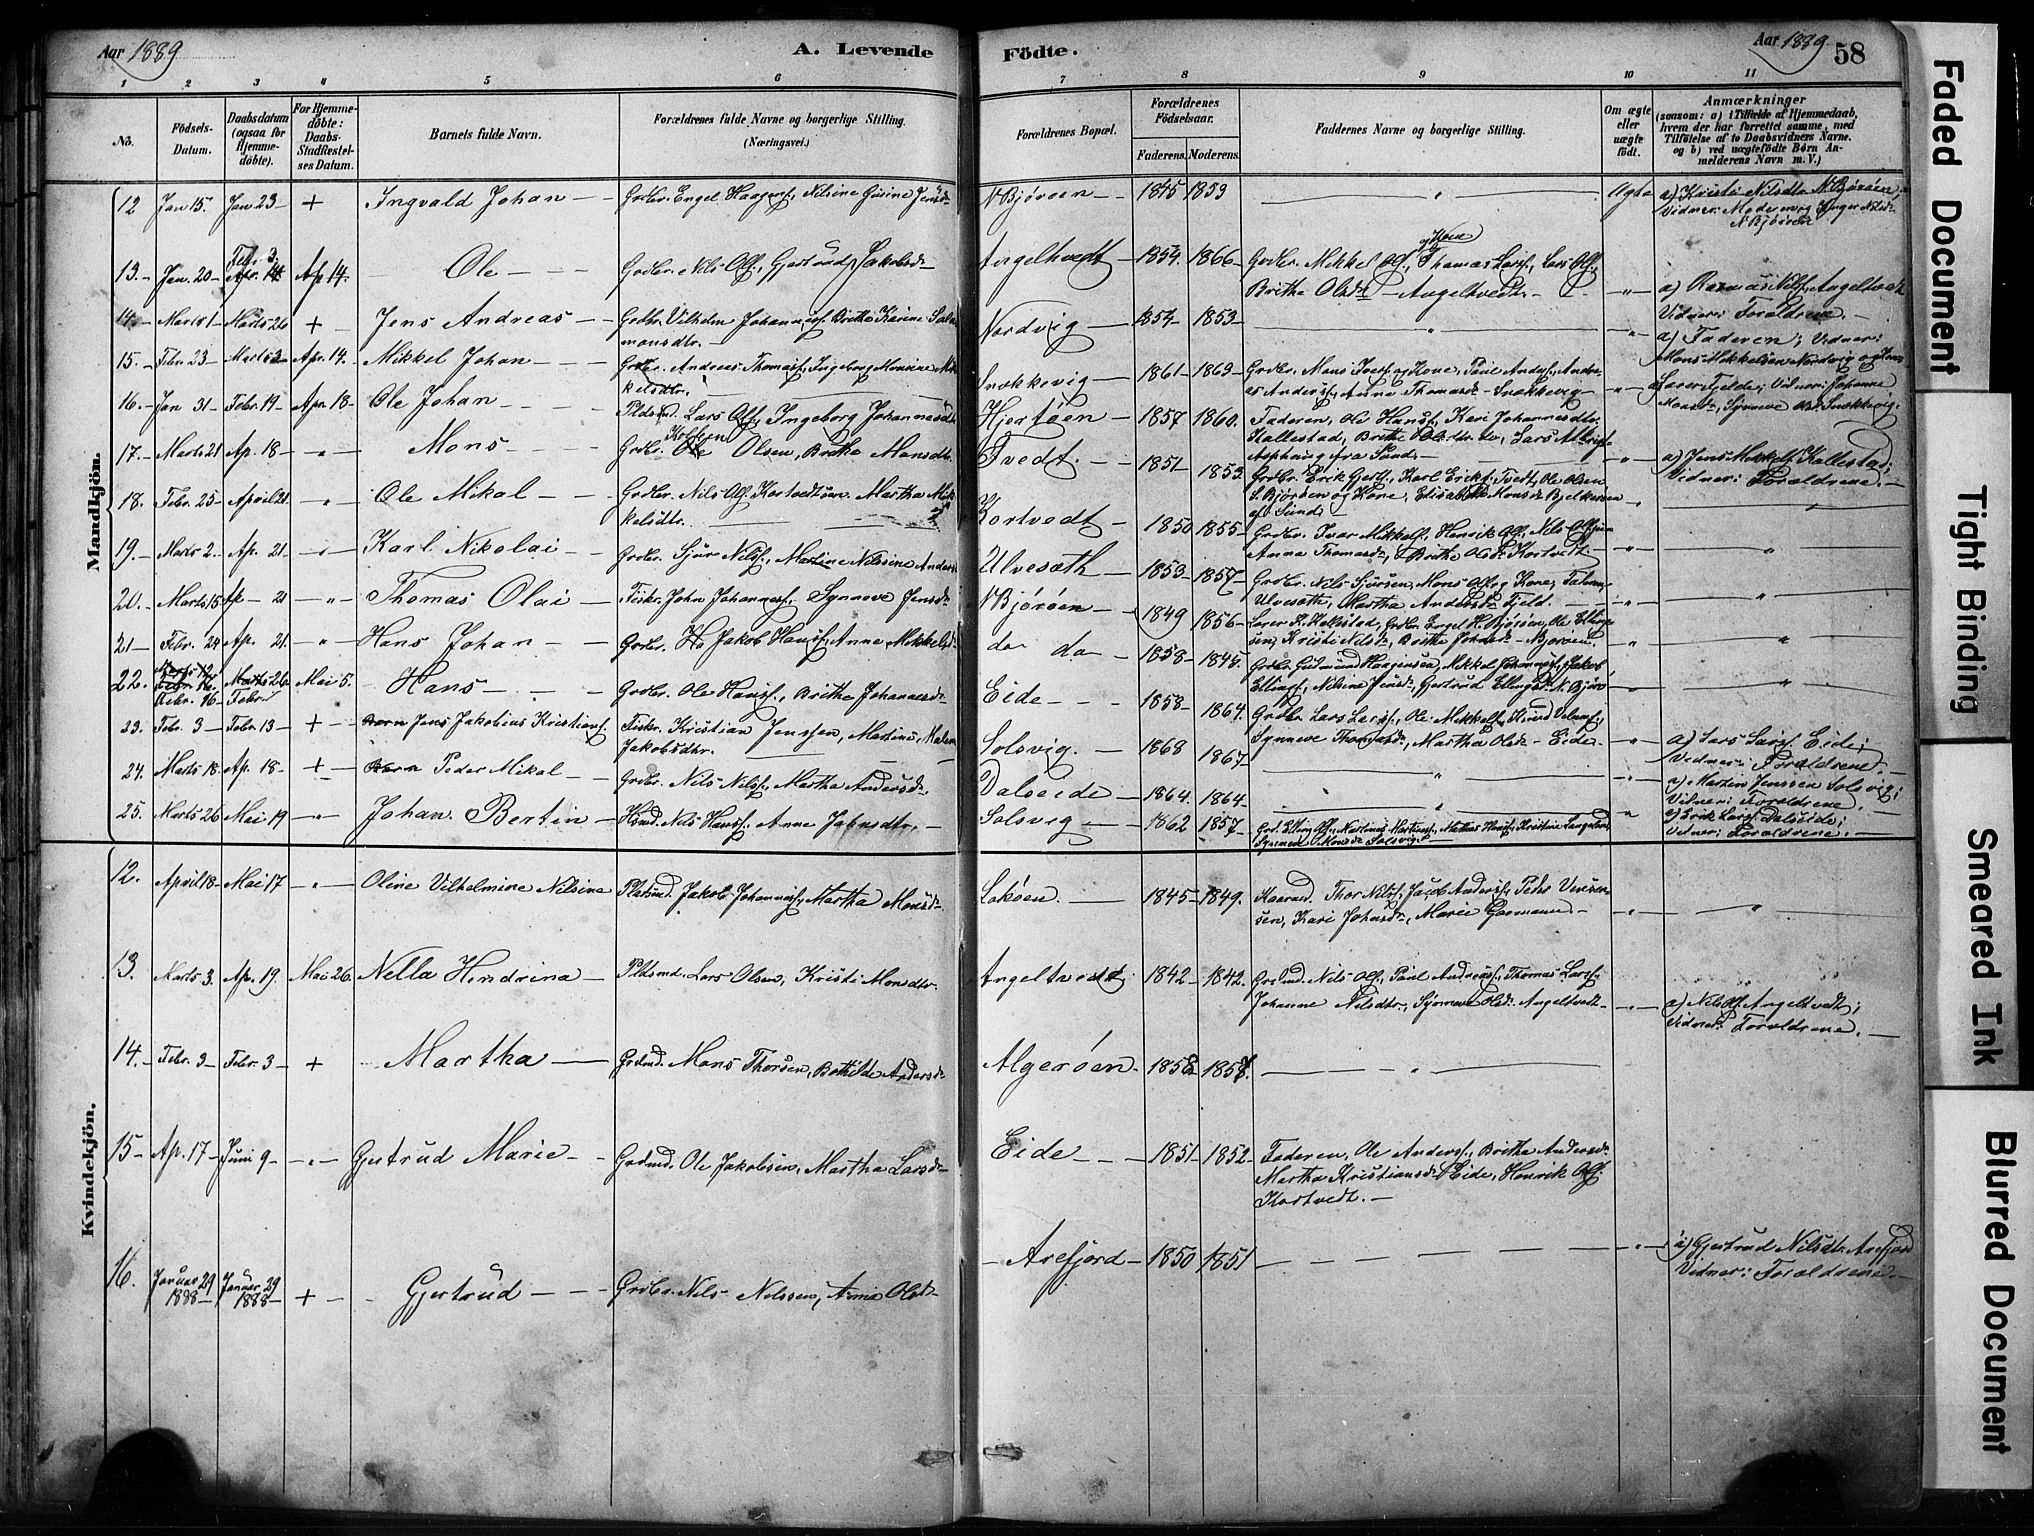 Aar 1889 A. Levende Födte. Aar 1889 58
1 2 3 4 5 6 7 8 9 10 11
No. Födsels-Datum. Daabsdatum (ogsaa for Hjemmedöbte). For Hjemmedöbte: Daabs-Stadfestelses Datum. Barnets fulde Navn. Forældrenes fulde Navne og borgerlige Stilling. (Næringsvei.) Forældrenes Bopæl. Forældrenes Födselsaar. Faderens. Moderens. Faddernes Navne og borgerlige Stilling. Om ægte eller uægte födt. Anmærkninger (saasom: a) i Tilfælde af Hjemmedaab, hvem der har forrettet samme, med Tilföielse af to Daabsvidners Navne. og b) ved uægtefödte Börn Anmelderens Navn m. V.)
Mandkjön.
12 Jan 15. Jan 23 + Ingvald Johan Grdbr. Engel Haagens., Nilsine Gurine Jensd. N Bjøröen 1845 1859 " Ægte a) Kristi Nilsdtr N. Bjøröen,
Vidner: Moderen og Inger Nilsd. N Bjøröen
13. Jan. 20 Febr 3. Apr. 14 Ap 14. Ole Grdbr. Nils Ols., Gjertrud Jakobsd. Angeltvedt 1854. 1866 Grdbr. Mikkel Ols. og Kone, Thomas Lars., Lars Ols.,
Brithe Olsdr Angeltvedt. " a) Rasmus Nils. Angeltvedt
Vidner: Forældrene.
14. Marts 1 Marts 26 + Jens Andreas Grdbr. Vilhelm Johanness. Brithe Karine Salomonsdtr. Nordvig 1854 1853 " " a) Faderen; Vidner:
Mons Mikkelsen Nordvig og Jens
15. Febr. 23 Marts 3 Apr. 14. Mikkel Johan Grdbr. Andreas Thomas., Ingeborg Monsine Mikkelsdtr. Snekkevig 1861 1863 Grdbr. Mons Ivers. og Kone, Paul Anders., Andreas Anders., Anna Thomasd. Snekkevig " Lærer Fjelde; Vidner: Johanne
Monsd., Synneve Olsd. Snekkevig.
16. Jan 31 Febr. 19 Apr. 18 Ole Johan Pldsmd. Lars Ols., Ingeborg Johannesdtr Hjertöen 1857 1860. Faderen, Ole Hans., Kari Johannesdtr.
Kallestad, Brithe Olsdr. do, Lars
fra Sund. " a) Jens Mikkels. Kallestad;
Vidner: Forældrene.
17. Marts 21 Ap. 18 " Mons Grdbr. Olsen, Brithe Monsdtr. Tvedt. 1851 1853 Grdbr. Erik Gjers., Karl Eriks. Tvedt, Ole Olsen
S. Bjøröen og Kone, Elisabeth Monsd. Bjelkeröen
af Sund. "
18. Febr. 25 April 21 " Ole Mikal Grdbr. Nils Ols. Kortvedtöen. Martha Mikkelsdtr. Kortvedt 1850 1855 Grdbr. Ivar Mikkels., Henrik Ols., Nils Ols.
Anna Thomasd., Brithe Olsd. Kortvedt. " "
19. Marts 2. Ap. 21 " Karl Nikolai Grdbr. Sjur Nils., Martine Nilsine Andersd. Ulvesæth 1853 1857 Grdbr. Nils Sjursen, Mons Ols. og Kone,
Ulvesæth, Martha Andersd. Fjeld. " "
20. Marts 15 Ap 21 " Thomas Olai Fisker. John Johanness. Synneve Jensd. N Bjøröen 1849 1856 Lærer K. Hallestad, Grdbr. Engel H. Bjøröen, Ole Ellingsen, Kristi Nilsd., Brithe Johnsd. N. Bjøröen. " "
21 Febr. 24 Ap. 21. " Hans Johan Grdbr. Jakob Hans., Anna Mikkelsd. do do 1858 1845. Grdbr. Gudmund Haagensen, Mikkel Johanness., Jakob
Ellings., Nilsine Jensd., Gjertrud Ellingsd. N. Bjørö " "
22. Marts 12 Febr. 16 Febr. 16 Marts 26 Febr. Mai 5. Hans Grdbr. Ole Hans., Brithe Johannesd. Eide 1858 1864. Grdbr. Lars Lars., Ole Mikkels., Knud Velums.,
Synneve Thomasd., Martha Olsd. Eide. " a) Lars Lars. Eide;
Vidner: Forældrene.
23. Febr. 3 Febr. 13 + Jens Jakobius Kristians. Fisker. Kristian Jenssen, Martine Malene Jakobsdtr. Solsvig. 1868 1867 " " a) Martin Jenssen Solsvig;
Vidner: Forældrene.
24. Marts 18. Ap. 18 + Peder Mikal Grdbr. Nils Nils., Martha Andersd. Dalseide 1864. 1864 " " a) Erik Lars. Dalseide;
Vidner: Forældrene.
25. Marts 26 Mai 19 " Johan Bertin Hsmd. Nils Hans., Anne Johnsdtr. Solsvig 1862 1857 Grd. Elling Ols., Martines., Mathias Hans., Kristine
Synneve Monsd. Solsvig.
Kvindekjön.
12. April 18 Mai 17 " Oline Vilhelmine Nilsine Pldsmd. Jakob Johanness., Martha Monsd. Lököen. 1845 1849. Thor Nils., Jacob Anders., Peder
Kari Johnsd., Marie Garmann. " "
13. Marts 3. Ap. 19. Mai 26. Nella Hendrina Pldsmd. Lars Olsen, Kristi Monsdtr. Angeltvedt 1842 1842. Grdmd. Nils Ols., Paul Andreas., Thomas Lars.,
Johanne Nilsdtr., Synneve Olsd. Angeltvedt " a) Nils Ols. Angeltvedt;
Vidner: Forældrene.
14. Febr. 3 Febr. 3 + Martha Grdmd. Mons Thorsen, Bothilde Andersd. Algeröen 1858 1857. "
15 Ap. 17 Juni 9 " Gjertrud Marie Grdmd. Ole Jakobsen, Martha Larsd. Eide 1851 1852 Faderen, Ole Anders., Brithe Andersd.
Martha Kristiansd. Eide, Henrik Ols.
Kortvedt.
16. Januar 29 1888 Januar 29 1888 + Gjertrud Grdbr. Nils Nilssen, Anna Olsd. Arefjord 1850 1851 " a) Gjertrud Nilsdtr. Arefjord
Vidner: Forældrene.
Faded Document
Tight Binding
Smeared Ink
Blurred Document